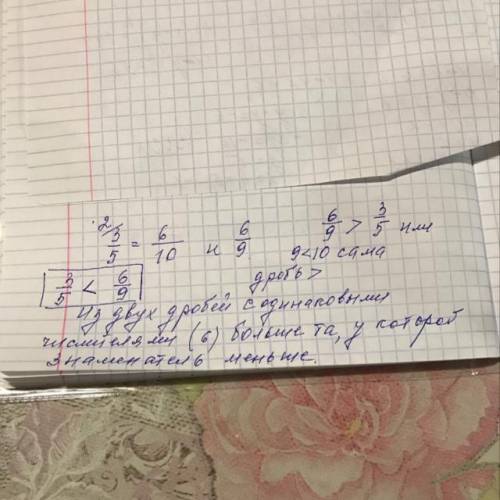 ·2/
3/5 = 6/10 и 6/9    6/9 > 3/5 или
3/5 < 6/9    9<10 сама дробь >
Из двух дробей с одинаковыми
числителями (6) больше та, у которой
знаменатель меньше.